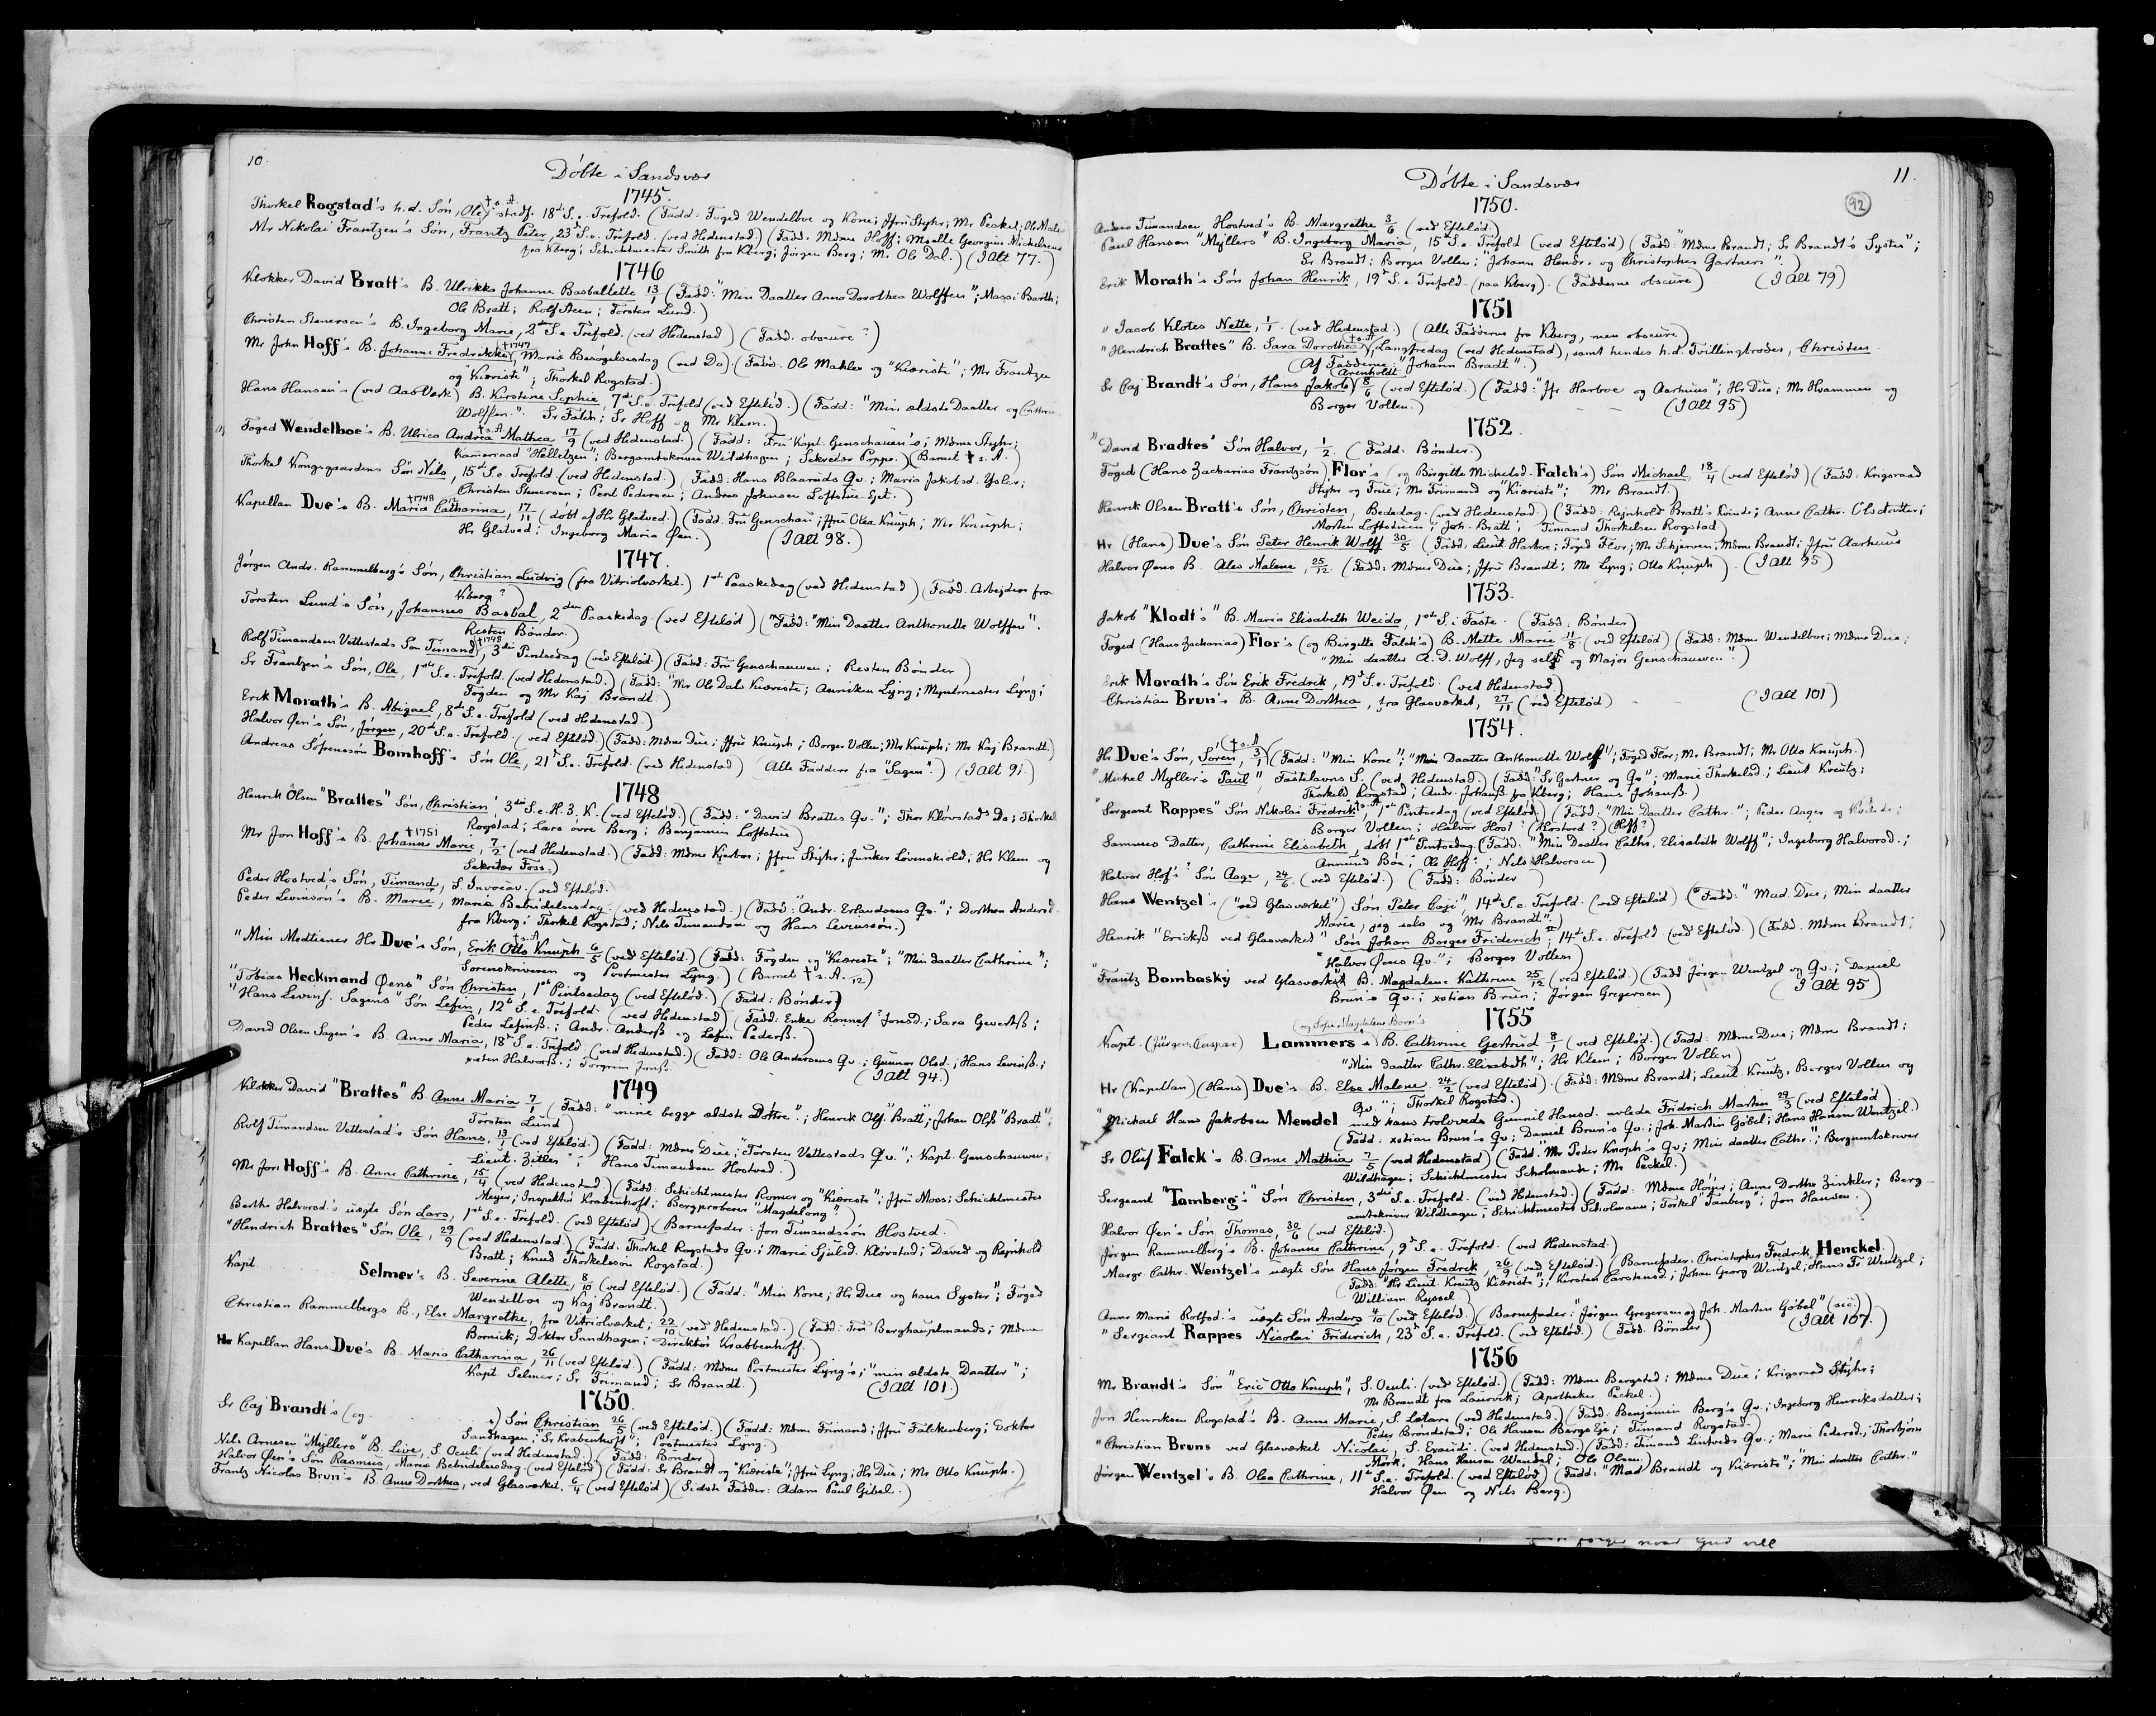 10.
Döbte i Sandsvær
1745.
Thorkel Rogstad's h.d. Sön, Ole, † s.A. stadf. 18d. S.e. Trefold. (Fadd: Foged Wendelboe og Kone; Jfru Styhr; Mr Peckel; Ole Mahler
Mr Nikolai Frantzen's Sön, Frantz Peter, 23d S.e. Trefold. (ved Hedenstad) (Fadd: Mdme Hoff; Mselle Georgine Mickelsens
fra Kberg; Schichtmester Smith fra Kberg; Jörgen Berg; Mr Ole Dal.) (I Alt 77.)
1746
Klokker David Bratt's B. Ulrikka Johanne Basballette 13/1 (Fadd: "Min Daatter Anna Dorothea Wolffen"; Massi Barth;
Ole Bratt; Rolf Steen; Torsten Lund.)
Christen Stenersen's B. Ingeborg Marie, 2den S.e. Trefold. (ved Hedenstad) (Fadd. obscure?)
Mr John Hoff's B. Johanne Fredrikke, †1747 Mariæ Besögelsesdag (ved Do). (Fadd. Ole Mahler og "Kiæriste"; Mr Frantzen
og "Kiæriste"; Thorkel Rogstad.)
Hans Hansen's (ved Aas Værk) B. Kirstine Sophie 7de S.e. Trefold (ved Eftelöd.) (Fadd: "Min ældste Daatter og Cathrin
Wolffen." Sr Falch; Sr Hoff og Mr Klem.)
Foged Wendelboe's B. Ulrica Andrea Mathea † s.A. 17/9 (ved Hedenstad.) (Fadd: Fru Kapt. Genschauen's; Mdme Styhr;
Kamerraad "Helletzen"; Bergamtskriver Wildhagen; Sekretær Poppe.) (Barnet † s.A.)
Thorkel Kongsgaardens Sön Nels, 15d S.e. Trefold. (ved Hedenstad.) (Fadd: Hans Blaarud's Qv.; Maria Jakobsd. Ysler;
Christen Stenersen; Pent Pedersen; Andrea Johnsen Loftstue-Eyet.)
Kapellan Due's B. Maria Catharina, †1748 17/11 (döbt af Hr Glatved.) (Fadd. Fru Genschau; Jfru Olea Knuph; Mr Knuph;
Hr Glatved; Ingeborg Maria Øen.) (I Alt 98.)
1747.
Jörgen Andr. Rammelberg's Sön, Christian Ludvig (fra Vitriolværket.) 1st Paaskedag (ved Hedenstad) (Fadd. Arbejdere fra
Kberg?)
Torsten Lund's Sön, Johannes Basbal, 2den Paaskedag. (ved Eftelöd) (Fadd: "Min Daatter Anthonette Wolffen".
Resten Bönder.)
Rolf Timandsen Vettestads Sön Timand, †1748 3die Pintsedag (ved Eftelöd.) (Fadd: Fru Genschauwen; Resten Bönder)
Sr Frantzen's Sön, Ole, 1st S.e. Trefold. (ved Hedenstad.) (Fadd: "Mr Ole Dals Kiæriste; Anniken Lyng; Myntmester Lyng;
Fogden og Mr Kaj Brandt.)
Erik Morath's B. Abigael, 8de S.e. Trefold (ved Hedenstad.)
Halvor Øen's Sön, Jörgen, 20de S.e. Trefold. (ved Eftelöd.) (Fadd: Mdme Due; Jfru Knuph; Borger Vollen; Mr Knuph; Mr Kaj Brandt.)
Andreas Söfrensön Bomhoff's Sön Ole, 21d S.e. Trefold. (ved Hedenstad) (Alle Faddere fra "Sagen".) (I Alt 91.)
1748
Henrik Olsen "Brattes" Sön, Christian, 3die S.e.H.3.K. (ved Eftelöd.) (Fadd: "David Brattes Qv."; Thor Klövstads Do; Thorkel
Rogstad; Lars övre Berg; Benjamin Loftstue)
Mr Jon Hoff's B. Johanne Marie, †1751 7/2 (ved Hedenstad.) (Fadd: Mdme Kjerbos; Jfru Styhr; Junker Lövenskiold; Hr Klem og
Sekretær Foss.)
Peder Hostved's Sön, Timand, S. Invocav. (ved Eftelöd.
Peder Levinsön's B. Marie, Mariæ Bebudelsesdag. (ved Hedenstad.) (Fadd: "Andr. Erlandsens Qv."; Dorthea Andersd.
fra Kberg; Thorkel Rogstad; Nils Timandsen og Hans Levinsön.)
"Min Medtiener Hr Due's Sön, Erik Otto Knuph † s.A. 6/5 (ved Eftelöd.) (Fadd: Fogden og "Kiæreste"; "Min daatter Cathrine";
Sorenskriveren og Postmester Lyng) (Barnet † s.A. /12)
"Tobias Heckmand Øens" Sön Christen, 1st Pintsedag (ved Eftelöd.) (Fadd: Bönder)
"Hans Levins. Sagens" Sön Lefin, 12te S.e. Trefold. (ved Hedenstad) (Fadd: Enke Ronnef? Jonsd.; Sara Gevertß;
Peder Lefinß.; Andr. Anderß og Lefin Pederß.)
David Olsen Sagen's B. Anne Maria, 18d S.e. Trefold (ved Hedenstad.) (Fadd: Ole Andersens Qv.; Gunnor Olsd.; Hans Levinß.;
xsten Halvorß.; Torgrim Jonß.) (I Alt 94.)
1749
Klokker David "Brattes" B. Anne Maria 7/1 (Fadd: "mine begge ældste Döttre"; Henrik Olß. "Bratt"; Johan Olß "Bradt";
Torsten Lund)
Rolf Timandsen Vettestad's Sön Hans, 13/1 (ved Eftelöd.) (Fadd: Mdme Due; "Torsten Vettestads Qv."; Kapt. Genschauwen;
Lieut. Zitler"; Hans Timandsen Hostved.)
Mr Jon Hoff's B. Anne Cathrine, 15/4 (ved Hedenstad.) (Fadd: Schichtmester Romer og "Kiæreste"; Jfru Moss; Schichtmester
Meyer; Inspektör Krabenhoft; Bergproberer "Magdelong".)
Berthe Halvorsd's uægte Sön Lars, 1st S.e. Trefold. (ved Eftelöd) (Barnefader: Jon Timandssön Hostved.
"Hendrich Brattes" Sön Ole, 29/9 (ved Hedenstad.) (Fadd: Thorkel Rogstads Qv.; Marie Sjulsd. Klövstad; David og Rejnhold
Bratt; Knud Thorkelssön Rogstad.)
Kapt. Selmer's B. Severine Alette, 8/10 (ved Eftelöd.) (Fadd: "Min Kone; Hr Due og hans Syster"; Foged
Wendelboe og Kaj Brandt.)
Christian Rammelbergs B., Else Margrethe, fra Vitriolværket, 22/10 (ved Hedenstad.) (Fadd: Fru Berghauptmands; Mdme
Bornick; Doktor Sandhagen; Direktör Krabbenhoff.)
Hr Kapellan Hans Due's B. Maria Catharina, 26/11 (ved Eftelöd.) (Fadd: Mdme Postmester Lyng's; "min ældste Daatter";
Kapt. Selmer; Sr Frimand; Sr Brandt.) (I Alt 101.)
1750.
Sr Caj Brandt's (og s) Sön Christian 26/5 (ved Eftelöd.) (Fadd: Mdme Frimand; Jfru Falckenberg; Doktor
Sandhagen; "Sr Krabenhoft"; Postmester Lyng.)
Nils Arnesen "Myllers" B. Live, S. Oculi (ved Hedenstad.) (Fadd: Bönder)
Halvor Øen's Sön Rasmus, Mariæ Bebudelsesdag (ved Eftelöd) (Fadd: Sr Brandt og "Kiæriste"; Jfru Lyng; Hr Due; Mr Otto Knuph.)
Frantz Nicolas Brun's B. Anne Dorthea, ved Glasværket, 5/4 (ved Eftelöd) (Sidste Fadder: Adam Paul Gibel.)
11.
92
Döbte i Sandsvær
1750.
Anders Timandsen Hostved's B. Margrethe 3/6 (ved Eftelöd)
Paul Hansen "Myllers" B. Ingeborg Maria, 15d S.e. Trefold (ved Eftelöd) (Fadd: "Mdme Brandt; Sr Brandt's Syster";
Sr Brandt; Borger Vollen; "Johann Hendr. og Christopher Gartners".)
Erik Morath's Sön Johan Henrik, 19d S.e. Trefold. (paa Kberg). (Fadderne obscure) (I Alt 79)
1751
"Jacob Klotes Nette, 1/1. (ved Hedenstad.) (Alle Fadderne fra Kberg, men obscure)
"Hendrich Brattes" B. Sara Dorothea † s.A., Langfredag (ved Hedenstad), samt hendes h.d. Tvillingbroder, Christen
(Af Fadderne "Johann Bradt".)
Sr Caj Brandt's Sön, Hans Jakob (Arenholdt) 8/6 (ved Eftelöd.) (Fadd: "Jfr Harboe og Aarhuus"; Hr Due; Mr Hvammen og
Borger Vollen.) (I Alt 95)
1752.
"David Bradtes" Sön Halvor, 1/2. (Fadd: Bönder.)
Foged (Hans Zacharias Frantzsön) Flor's (og Birgitte Michelsd. Falch's) Sön Michael, 18/4 (ved Eftelöd) (Fadd: Krigsraad
Styhr og Frue; Mr Frimand og "Kiæriste"; Mr Brandt.)
Henrik Olsen Bratt's Sön, Christen, Bededag. (ved Hedenstad.) (Fadd: Rejnhold Bratt's Kvinde; Anne Cathr. Olsdatter;
Morten Loftstuen; Joh. Bratt; Timand Thorkelsen Rogstad)
Hr (Hans) Due's Sön Peter Henrik Wolff 30/5 (Fadd: Lieut Harboe; Foged Flor; Mr Schjerven; Mdme Brandt; Jfru Aarhuus
Halvor Øens B. Ales Malene, 25/12. (Fadd: Mdme Due; Jfru Brandt; Mr Lyng; Otto Knuph). (I Alt 95)
1753.
Jakob "Klodt's" B. Maria Elisabeth Weida, 1ste S. i Faste. (Fadd: Bönder)
Foged (Hans Zacharias) Flor's (og Birgitte Falch's) B. Mette Marie 11/8 (ved Eftelöd) (Fadd: Mdme Wendelboe; Mdme Due;
"Min daatter A.D. Wolff, Jeg self og Major Genschauwen".)
Erik Morath's Sön Erik Fredrik, 19d S.e. Trefold. (ved Hedenstad)
Christian Brun's B. Anne Dorthea, fra Glasværket, 27/11 (ved Eftelöd) (I Alt 101)
1754.
Hr Due's Sön, Sören, († s.A) /3 (Fadd: "Min Kone"; "Min Daatter Anthonette Wolff"; Foged Flor; Mr Brandt; Mr Otto Knuph.)
"Mickel Myller's Paul", Fastelavns S. (ved Hedenstad.) (Fadd: "Sr Gartner og Qv"; Marie Thorkelsd.; Lieut Kreutz;
Thorkeld Rogstad; Andr. Johanß. fra Kberg; Hans Johanß.)
"Sergeant Rappes" Sön Nikolai Fredrik, † s.A 1st Pintsedag (ved Eftelöd.) (Fadd: "Min Daatter Cathr."; Peder Aages og Kvinde;
Borger Vollen; Halvor Host? (Hostved?) (Hoff?)
Sammes Datter, Cathrine Elisabeth, döbt 1st Pintsedag. (Fadd: "Min Daatter Cathr. Elisabeth Wolff"; Ingeborg Halvorsd.;
Anmund Böe; Ole Hoff; Nils Halvorsen)
Halvor Hof's? Sön Aage, 24/6. (ved Eftelöd.) (Fadd: Bönder)
Hans Wentzel's ("ved Glasværket") Sön Peter Caji" 14d S.e. Trefold. (ved Eftelöd) (Fadd: "Mad. Due; Min daatter
Marie, jeg selv og Mr Brandt".)
Henrik "Erickß ved Glasværket" Sön Johan Borger Friderich; 14d S.e. Trefold (ved Eftelöd.) (Fadd. Mdme Brandt;
"Halvor Øens Qv."; Borger Vollen)
"Frantz Bombasky ved Glasværket" B. Magdalene Kathrine 25/12 (ved Eftelöd.) (Fadd Jörgen Wentzel og Qv.; Daniel
Brun's Qv.; xstian Brun; Jörgen Gregersen) (I Alt 95)
1755
Kapt. (Jörgen Caspar) Lammers's (og Sofie Magdalene Born's B. Cathrine Gertrud 8/1 (ved Eftelöd.) (Fadd: Mdme Due; Mdme Brandt;
"Min daatter Cathr. Elisabeth"; Hr Klem; Borger Vollen)
Hr (Kapellan) (Hans) Due's B. Else Malene 24/2 (ved Eftelöd). (Fadd: Mdme Brandt; Lieut. Kreutz, Borger Vollen og
Qv."; Thorkel Rogstad.)
"Michael Hans Jakobsen Mendel med hans trolovede Gunnil Hansd. avlede Fridrich Marten 29/3 (ved Eftelöd)
(Fadd: xstian Brun's Qv; Daniel Brun's Qv.; Joh. Martin Göbel; Hans Hansen Wentzel.)
Sr Oluf Falck's B. Anne Mathia 7/5 (ved Hedenstad) (Fadd: "Mr Peder Knoph's Qv; Min daatter Cathr."; Bergamtskriver
Wildhagen; Schichtmester Scholmann; Mr Peckel.)
Sergeant "Tamberg's" Sön Christen, 3die S.e. Trefold. (ved Hedenstad.) (Fadd: Mdme Höyer; Anne Dorthe Zinkler; Berg-
amtskriver Wildhagen; Schichtmester Scholmann; Torkel "Tanberg"; Jon Hansen.)
Halvor Øen's Sön Thomas, 30/6 (ved Eftelöd.)
Jörgen Rammelberg's B. Johanne Cathrine, 9d S.e. Trefold. (ved Hedenstad.)
Margr. Cathr. Wentzel's uægte Sön Hans Jörgen Fredrik, 26/9 (ved Eftelöd.) (Barnefader: Christopher Fredrik Henckel)
(Fadd: "Hr Lieut. Kreutz Kiæriste"; Kirsten Carstensd.; Johan Georg Wentzel; Hans Fr. Wentzel;
William Ryssel)
Anne Marie Rolfsd.'s uægte Sön Anders 4/10 (ved Eftelöd.) (Barnefader: "Jörgen Gregersen og Joh. Martin Göbel" (sic.))
"Sergeant Rappes Nicolai Friderich, 23d S.e. Trefold. (ved Eftelöd.) (Fadd. Bönder) (I Alt 107.)
1756
Mr Brandt's Sön "Eric Otto Knuph", S. Oculi. (ved Eftelöd.) (Fadd: Mdme Bergsted; Mdme Due; Krigsraad Styhr;
Mr Brandt fra Laurvik; Apotheker Peckel.)
Jon Henriksen Rogstad's B. Anne Marie, S. Lætare (ved Hedenstad.) (Fadd: Benjamin Berg's Qv.; Ingeborg Henriksdatter;
Peder Bröndstad; Ole Hansen Bergs Eje; Timand Rogstad.)
"Christian Bruns ved Glasværket Nicolai, S. Exaudi. (ved Hedenstad.) (Fadd: Timand Lintveds Qv.; Marie Pedersd.; Thorbjörn
Mörk; Hans Hansen Wendel; Ole Olsen.)
Jörgen Wentzel's B. Olea Cathrine, 11te S.e. Trefold. (ved Eftelöd) (Fadd: "Mad Brandt og Kiæriste"; "Min daatter Cathr."
Halvor Øen og Nils Berg.)